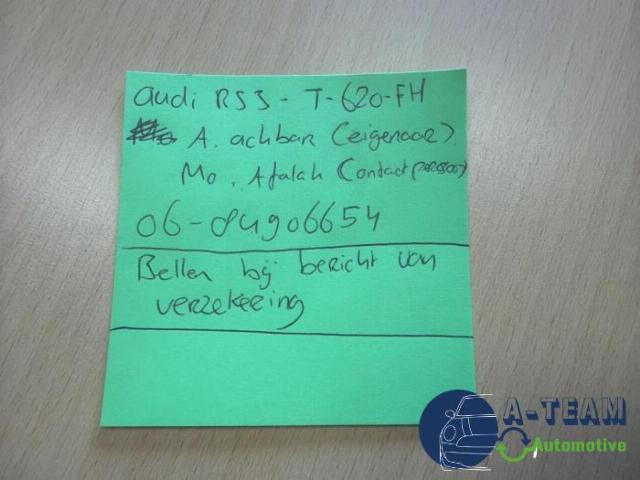 audi RS3 - T-620-FH
A. achbar (eigenaar).
Mo. Afalah (Contact persoon)
06-84906654
Bellen bij bericht van
verzekering
A-TEAM
Automotive